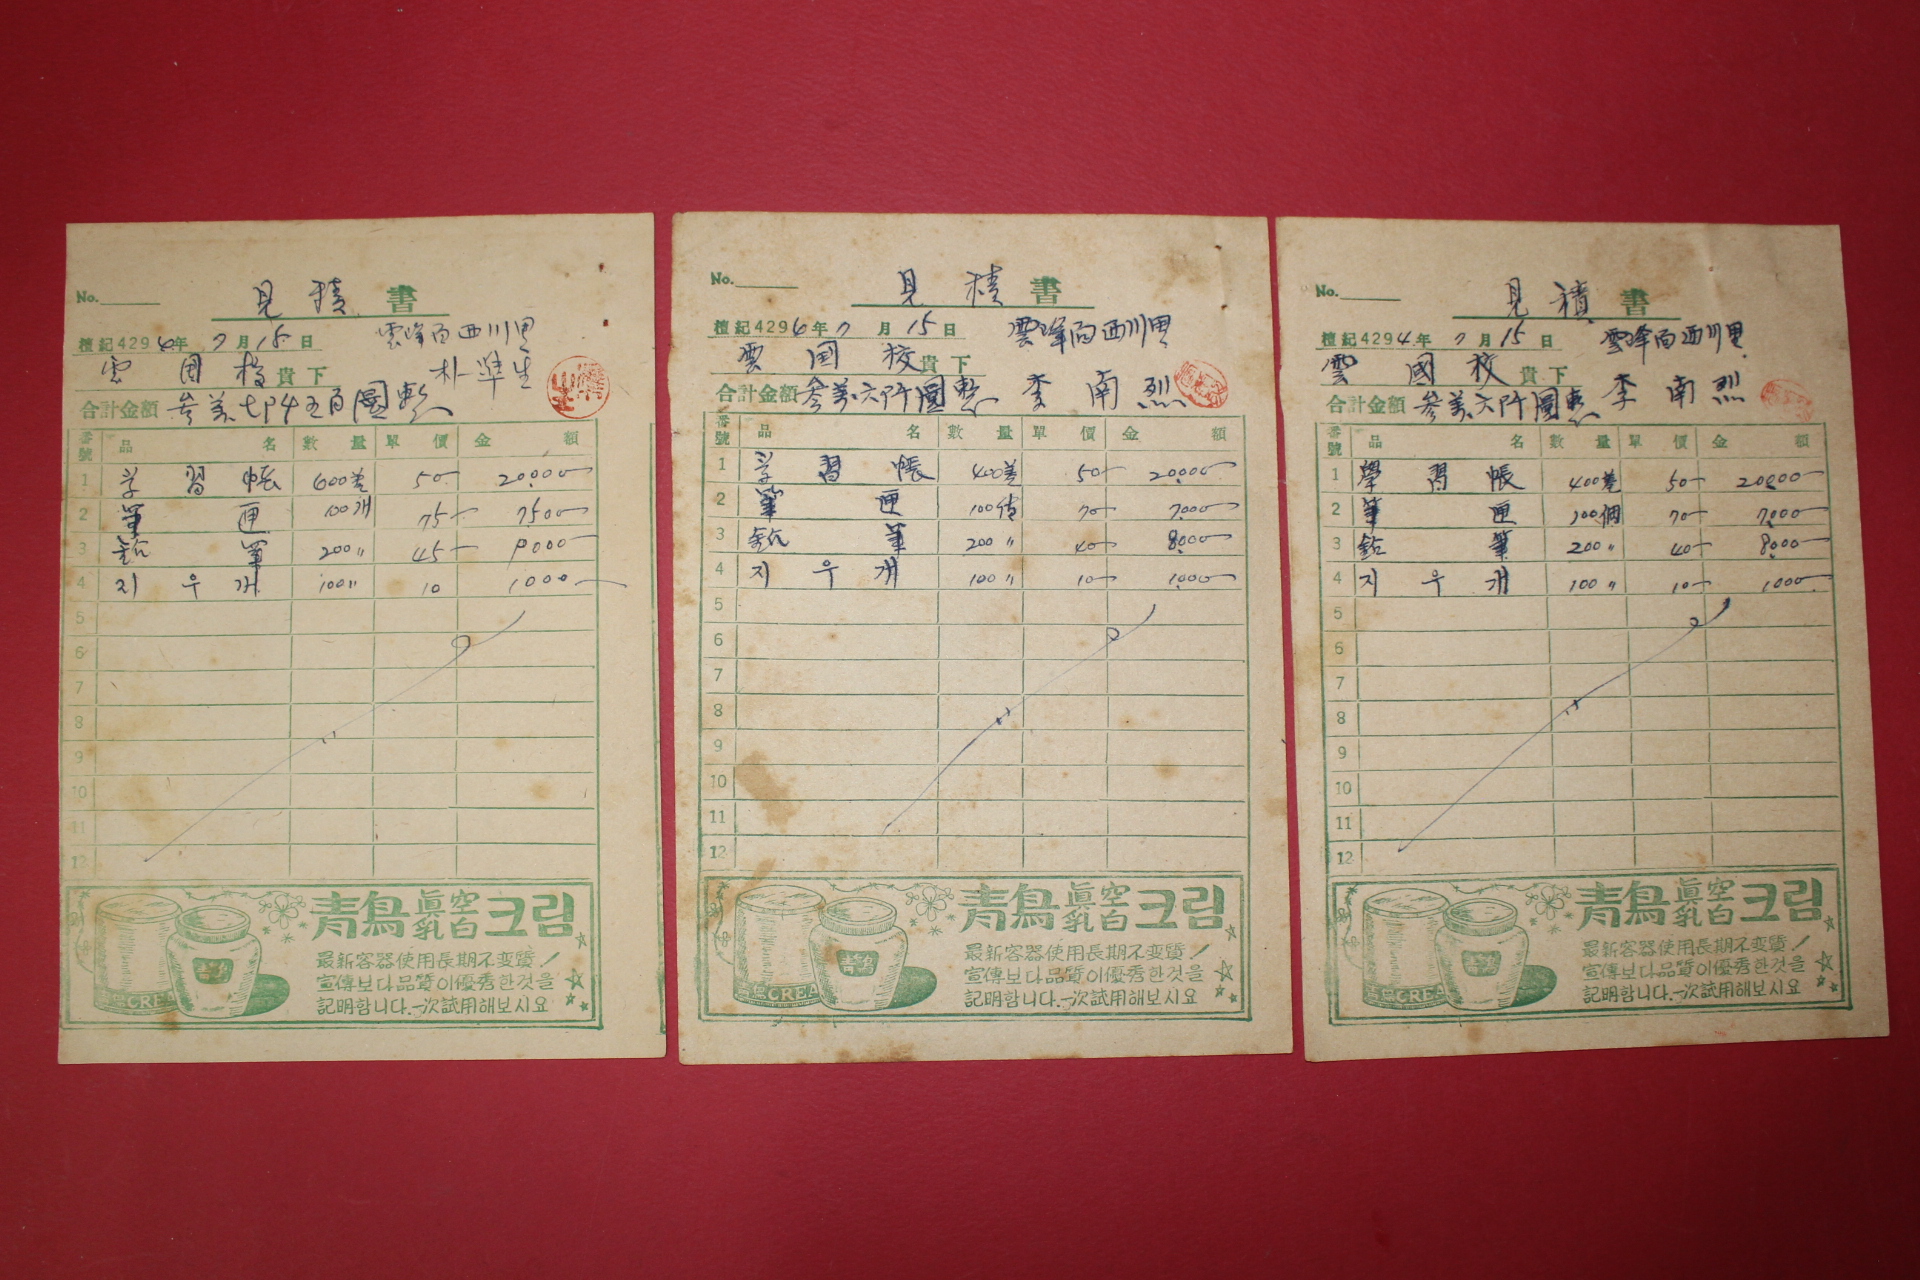 No.
見積書
檀紀4294年 7月15日
雲峰面西川里
雲国校 貴下
朴準生
合計金額 参萬七阡五百圜整
番號 品名 數量 單價 金額
1 学習帳 400巻 50- 20,000-
2 筆匣 100개 75- 7500-
3 鉛筆 200〃 45- 9000-
4 지우개 100〃 10 1000-
5
6
7
8
9
10
11
12
青鳥 眞空乳白 크림
最新容器使用長期不変質!
宣傳보다品質이優秀한것을
記明합니다.一次試用해보시요
CREA
No.
見積書
檀紀4294年 7月15日
雲峰面西川里
雲国校 貴下
合計金額 参萬六阡圜整 李南烈
番號 品名 數量 單價 金額
1 学習帳 400巻 50- 20,000-
2 筆匣 100個 70- 7,000-
3 鉛筆 200〃 40- 8,000-
4 지우개 100〃 10- 1,000-
5
6
7
8
9
10
11
12
青鳥 眞空乳白 크림
最新容器使用長期不変質!
宣傳보다品質이優秀한것을
記明합니다.一次試用해보시요
CREA
No.
見積書
檀紀4294年 7月15日
雲峰面西川里
雲國校 貴下
合計金額 参萬六阡圜整 李南烈
番號 品名 數量 單價 金額
1 學習帳 400巻 50- 20,000-
2 筆匣 100個 70- 7,000-
3 鉛筆 200〃 40- 8,000-
4 지우개 100〃 10- 1,000-
5
6
7
8
9
10
11
12
青鳥 眞空乳白 크림
最新容器使用長期不変質!
宣傳보다品質이優秀한것을
記明합니다.一次試用해보시요
CREA